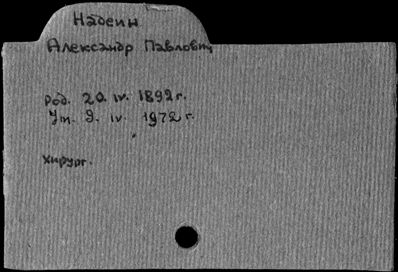 Надеин
Александр Павлович
Род. 20. IV. 1892 г.
Ум. 9. IV. 1972 г.
хирург.